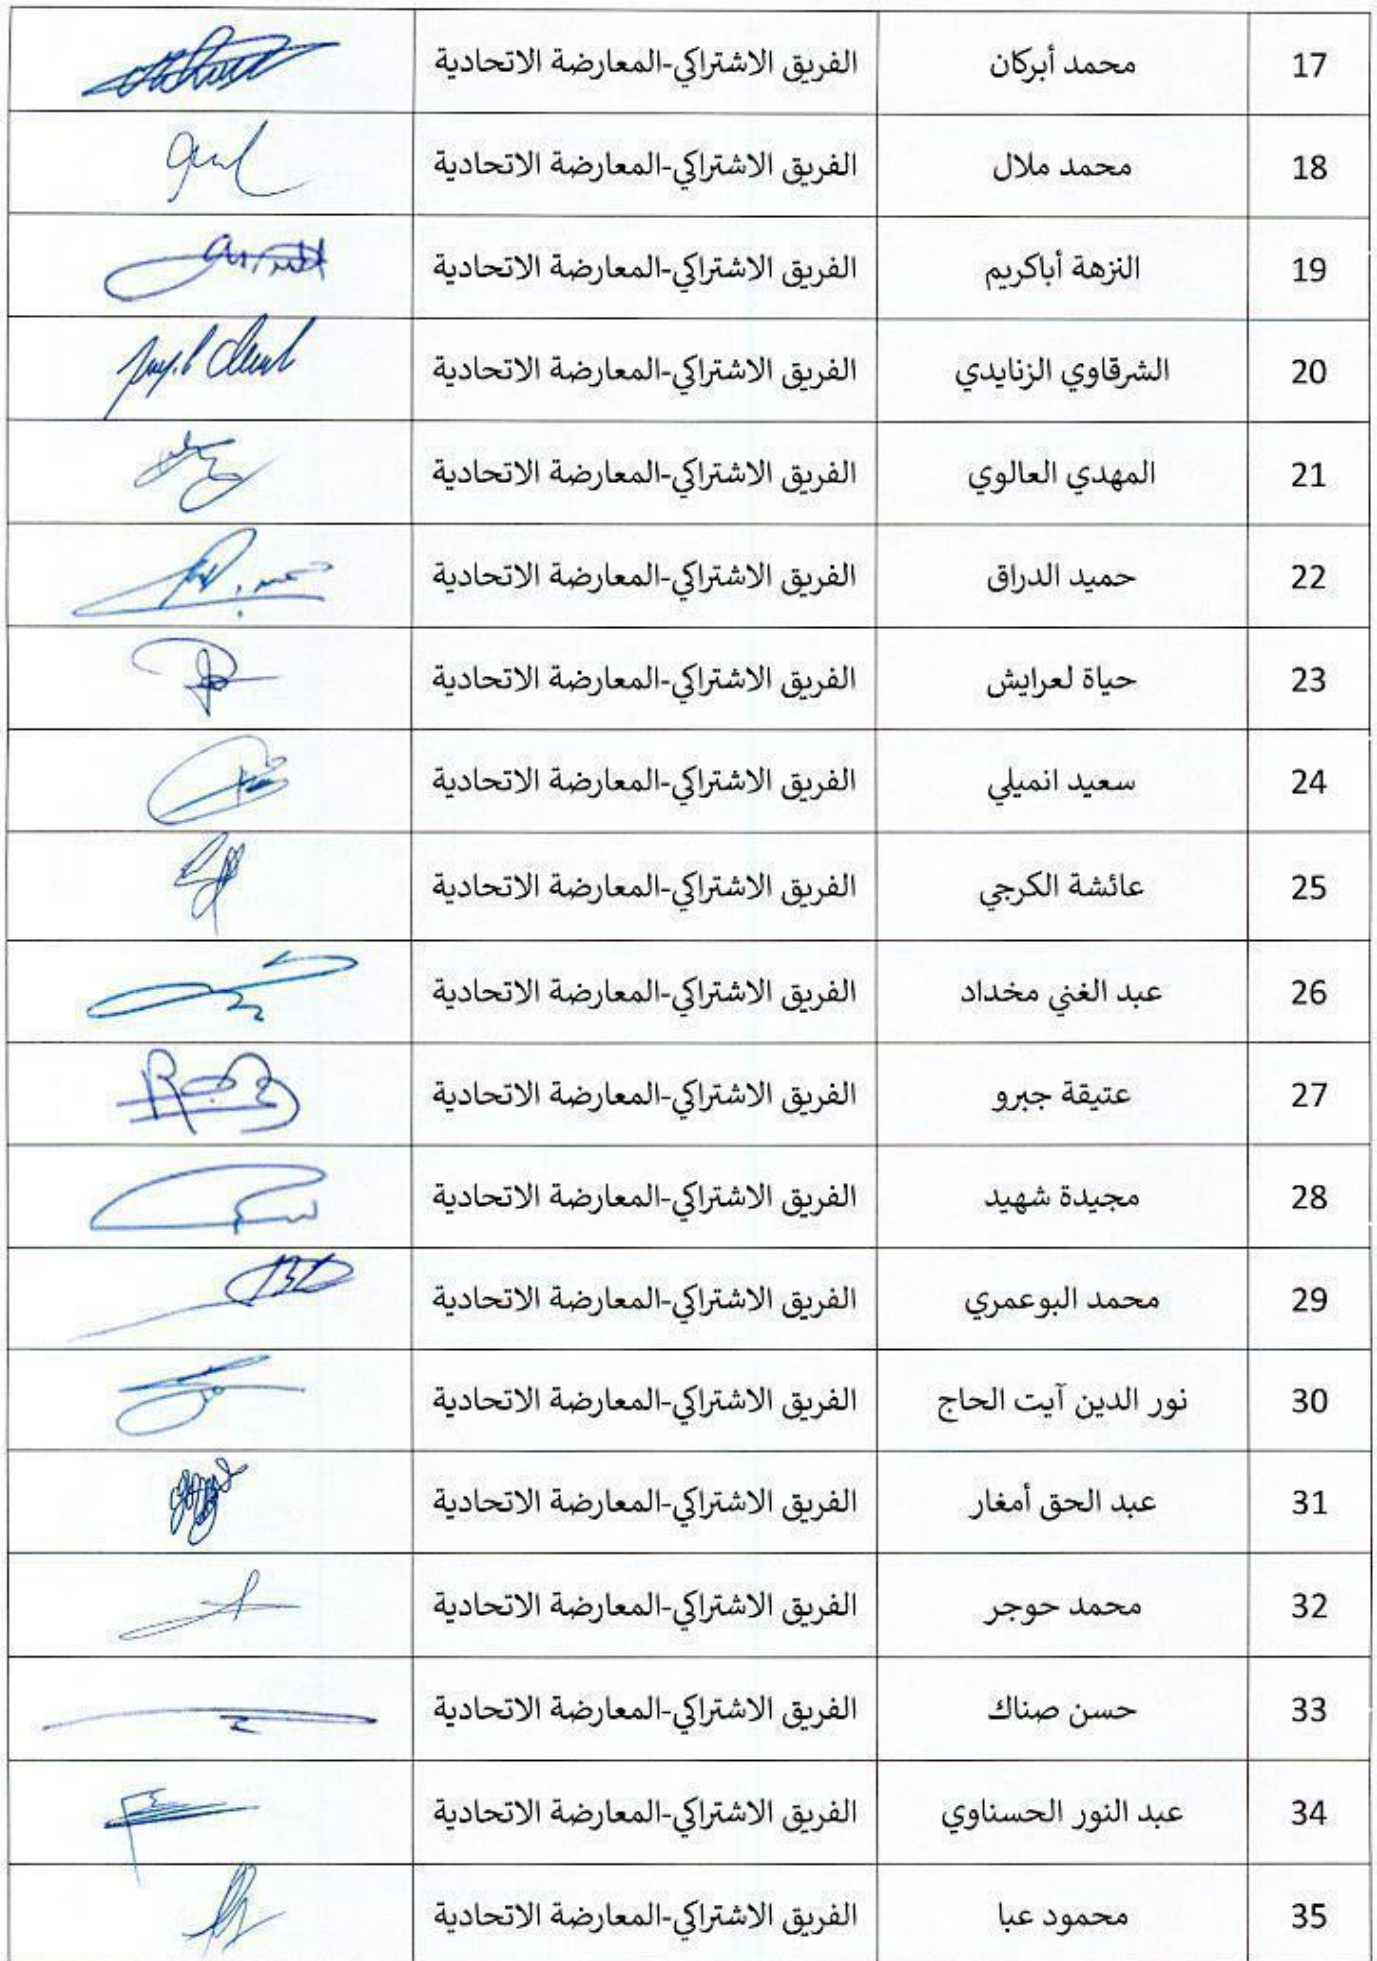 17 محمد أبركان الفريق الاشتراكي-المعارضة الاتحادية
18 محمد ملال الفريق الاشتراكي-المعارضة الاتحادية
19 النزهة أباكريم الفريق الاشتراكي-المعارضة الاتحادية
20 الشرقاوي الزنايدي الفريق الاشتراكي-المعارضة الاتحادية
21 المهدي العالوي الفريق الاشتراكي-المعارضة الاتحادية
22 حميد الدراق الفريق الاشتراكي-المعارضة الاتحادية
23 حياة لعرايش الفريق الاشتراكي-المعارضة الاتحادية
24 سعيد انميلي الفريق الاشتراكي-المعارضة الاتحادية
25 عائشة الكرجي الفريق الاشتراكي-المعارضة الاتحادية
26 عبد الغني مخداد الفريق الاشتراكي-المعارضة الاتحادية
27 عتيقة جبرو الفريق الاشتراكي-المعارضة الاتحادية
28 مجيدة شهيد الفريق الاشتراكي-المعارضة الاتحادية
29 محمد البوعمري الفريق الاشتراكي-المعارضة الاتحادية
30 نور الدين آيت الحاج الفريق الاشتراكي-المعارضة الاتحادية
31 عبد الحق أمغار الفريق الاشتراكي-المعارضة الاتحادية
32 محمد حوجر الفريق الاشتراكي-المعارضة الاتحادية
33 حسن صناك الفريق الاشتراكي-المعارضة الاتحادية
34 عبد النور الحسناوي الفريق الاشتراكي-المعارضة الاتحادية
35 محمود عبا الفريق الاشتراكي-المعارضة الاتحادية